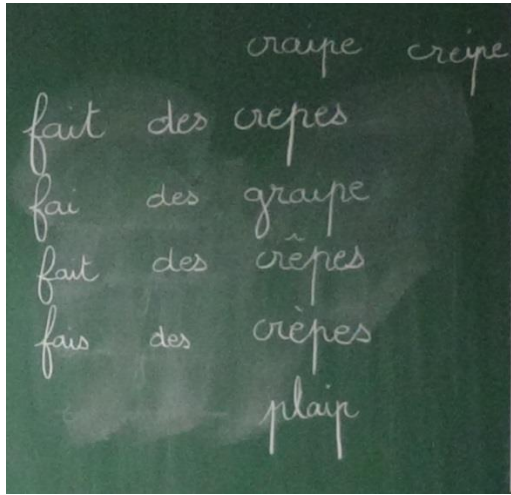 craipe creipe
fait des crepes
fai des graipe
fait des crêpes
fais des crèpes
plaip